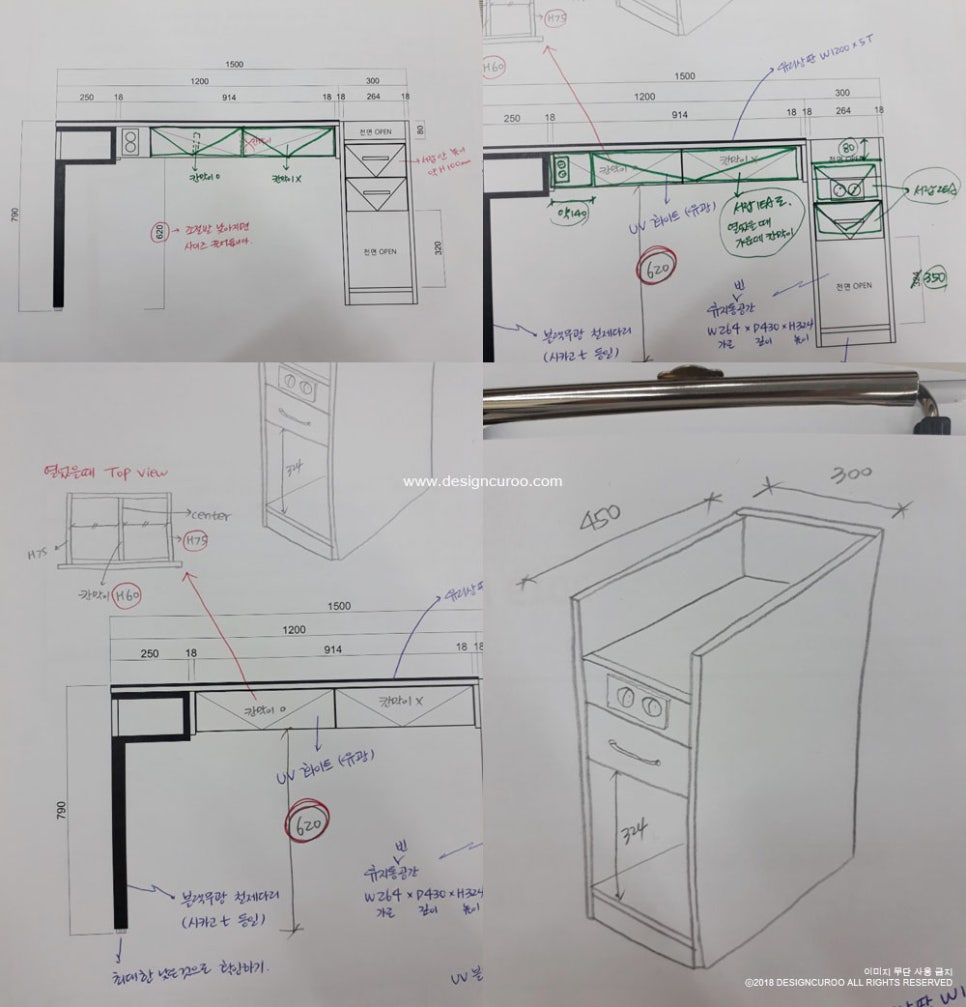 1500
1200
300
250
18
914
18
18
264
18
전면 OPEN
80
칸막이 O
칸막이 X
790
620
조절발 낮아지면
전면 OPEN
320
H75
H60
유리상판 W1200 x 5T
1500
1200
300
250
18
914
18
18
264
18
칸막이 X
80
약140
UV 화이트 (유광)
서랍 1EA로.
열었을때
가운데 칸막이
서랍 2EA
620
전면 OPEN
350
빈
휴지통공간
W264 x D430 x H324
가로 깊이 높이
블랙무광 철제다리
(시카고 t 동일)
열었을때 Top View
center
H75
H75
칸막이 H60
324
www.designcuroo.com
유리상판
1500
1200
250
18
914
18
18
칸막이 O
칸막이 X
UV 화이트 (유광)
790
620
빈
휴지통공간
W264 x D430 x H324
가로 깊이 높이
블랙무광 철제다리
(시카고 t 동일)
최대한 낮은것으로
450
300
324
이미지 무단 사용 금지
©2018 DESIGNCUROO ALL RIGHTS RESERVED